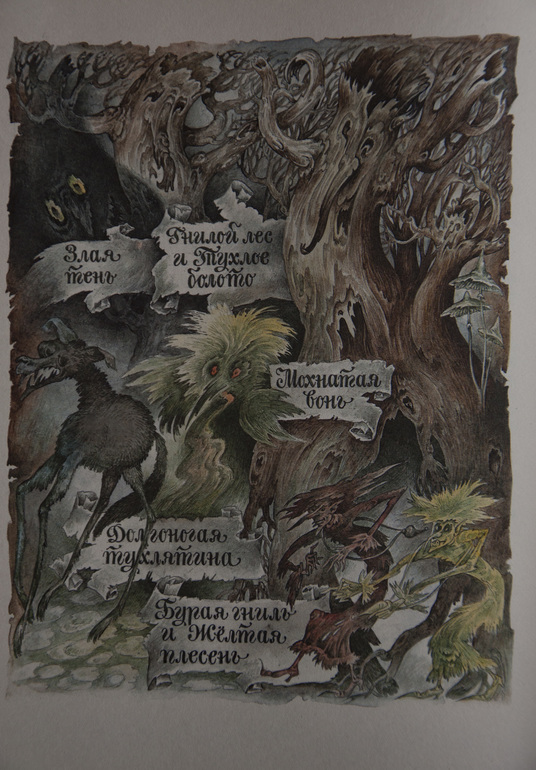 Злая
тень
Гнилой лес
и Тухлое
болото
Мохнатая
вонь
Долгоногая
тухлятина
Бурая гниль
и Жёлтая
плесень